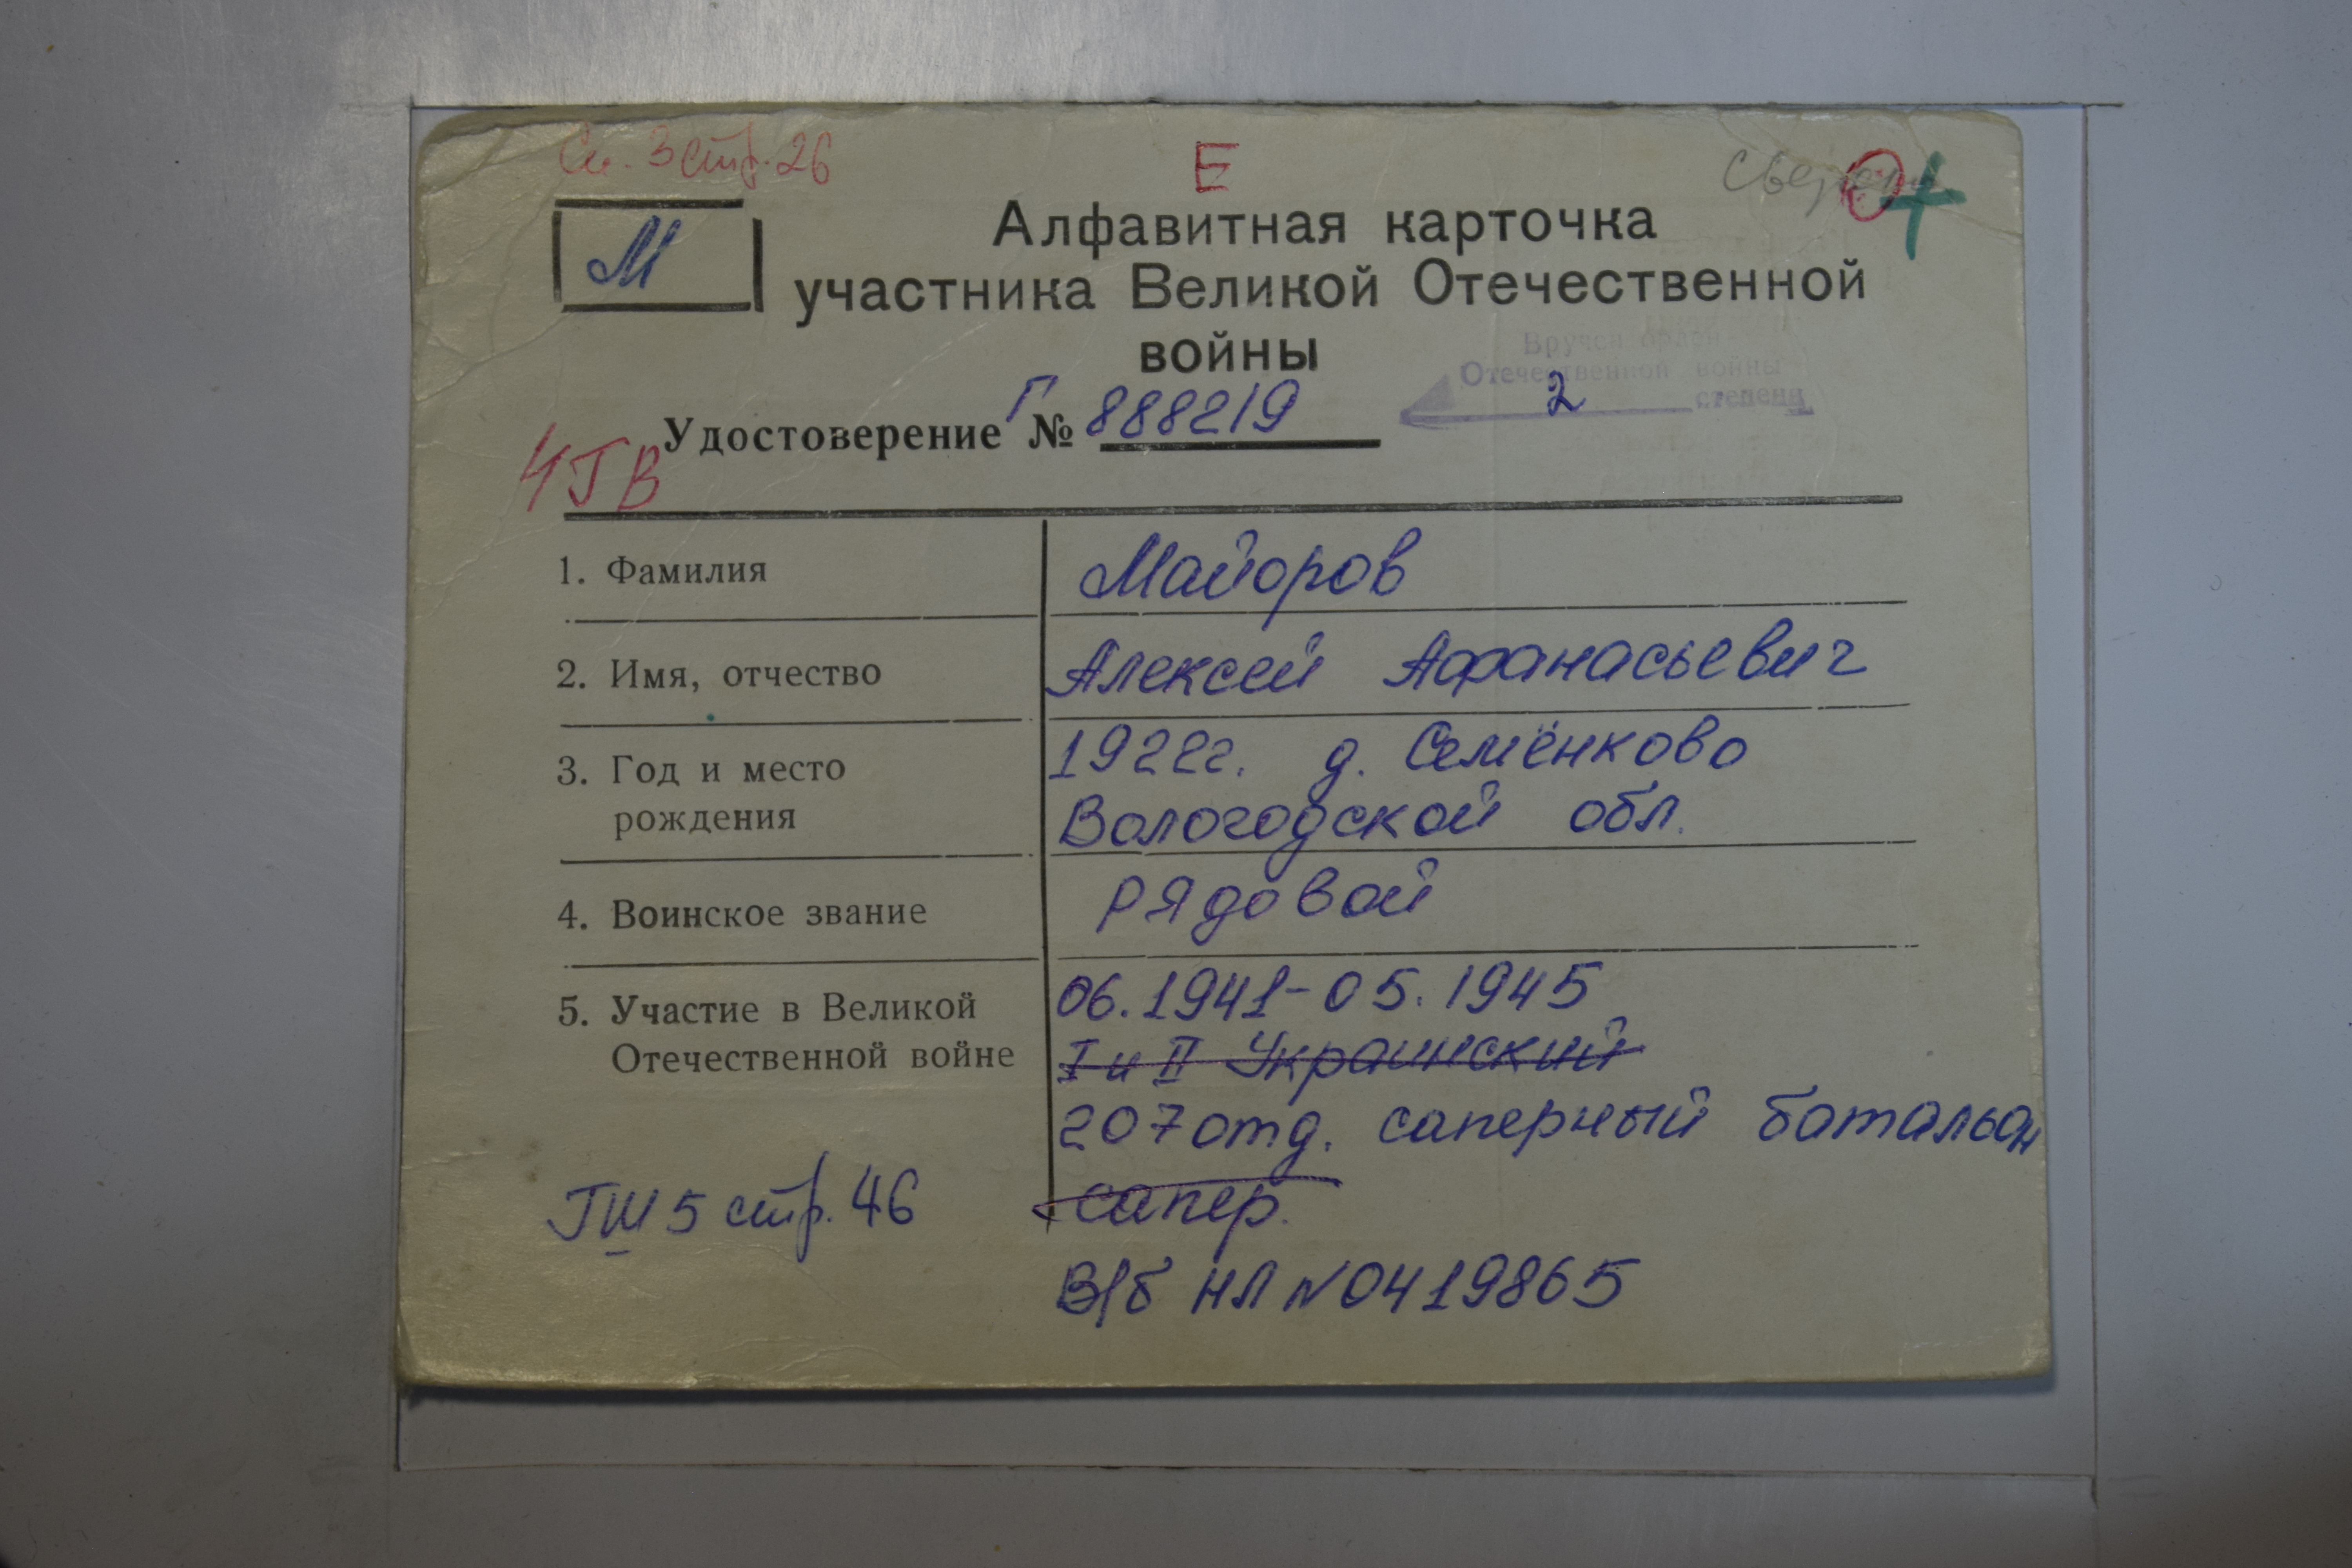 Сп. 3 стр. 26
Е
О
М
Алфавитная карточка
участника Великой Отечественной
войны
Вручен орден
Отечественной войны
2 степени
Удостоверение Г № 888219
ЧТВ
1. Фамилия Майоров
2. Имя, отчество Алексей Афанасьевич
3. Год и место 1922г. д. Семёнково
рождения Вологодской обл.
4. Воинское звание рядовой
5. Участие в Великой 06.1941-05.1945
Отечественной войне I и II Украинский
207 отд. саперный батальон
ТШ 5 стр. 46 сапер.
В/б НЛ № 0419865